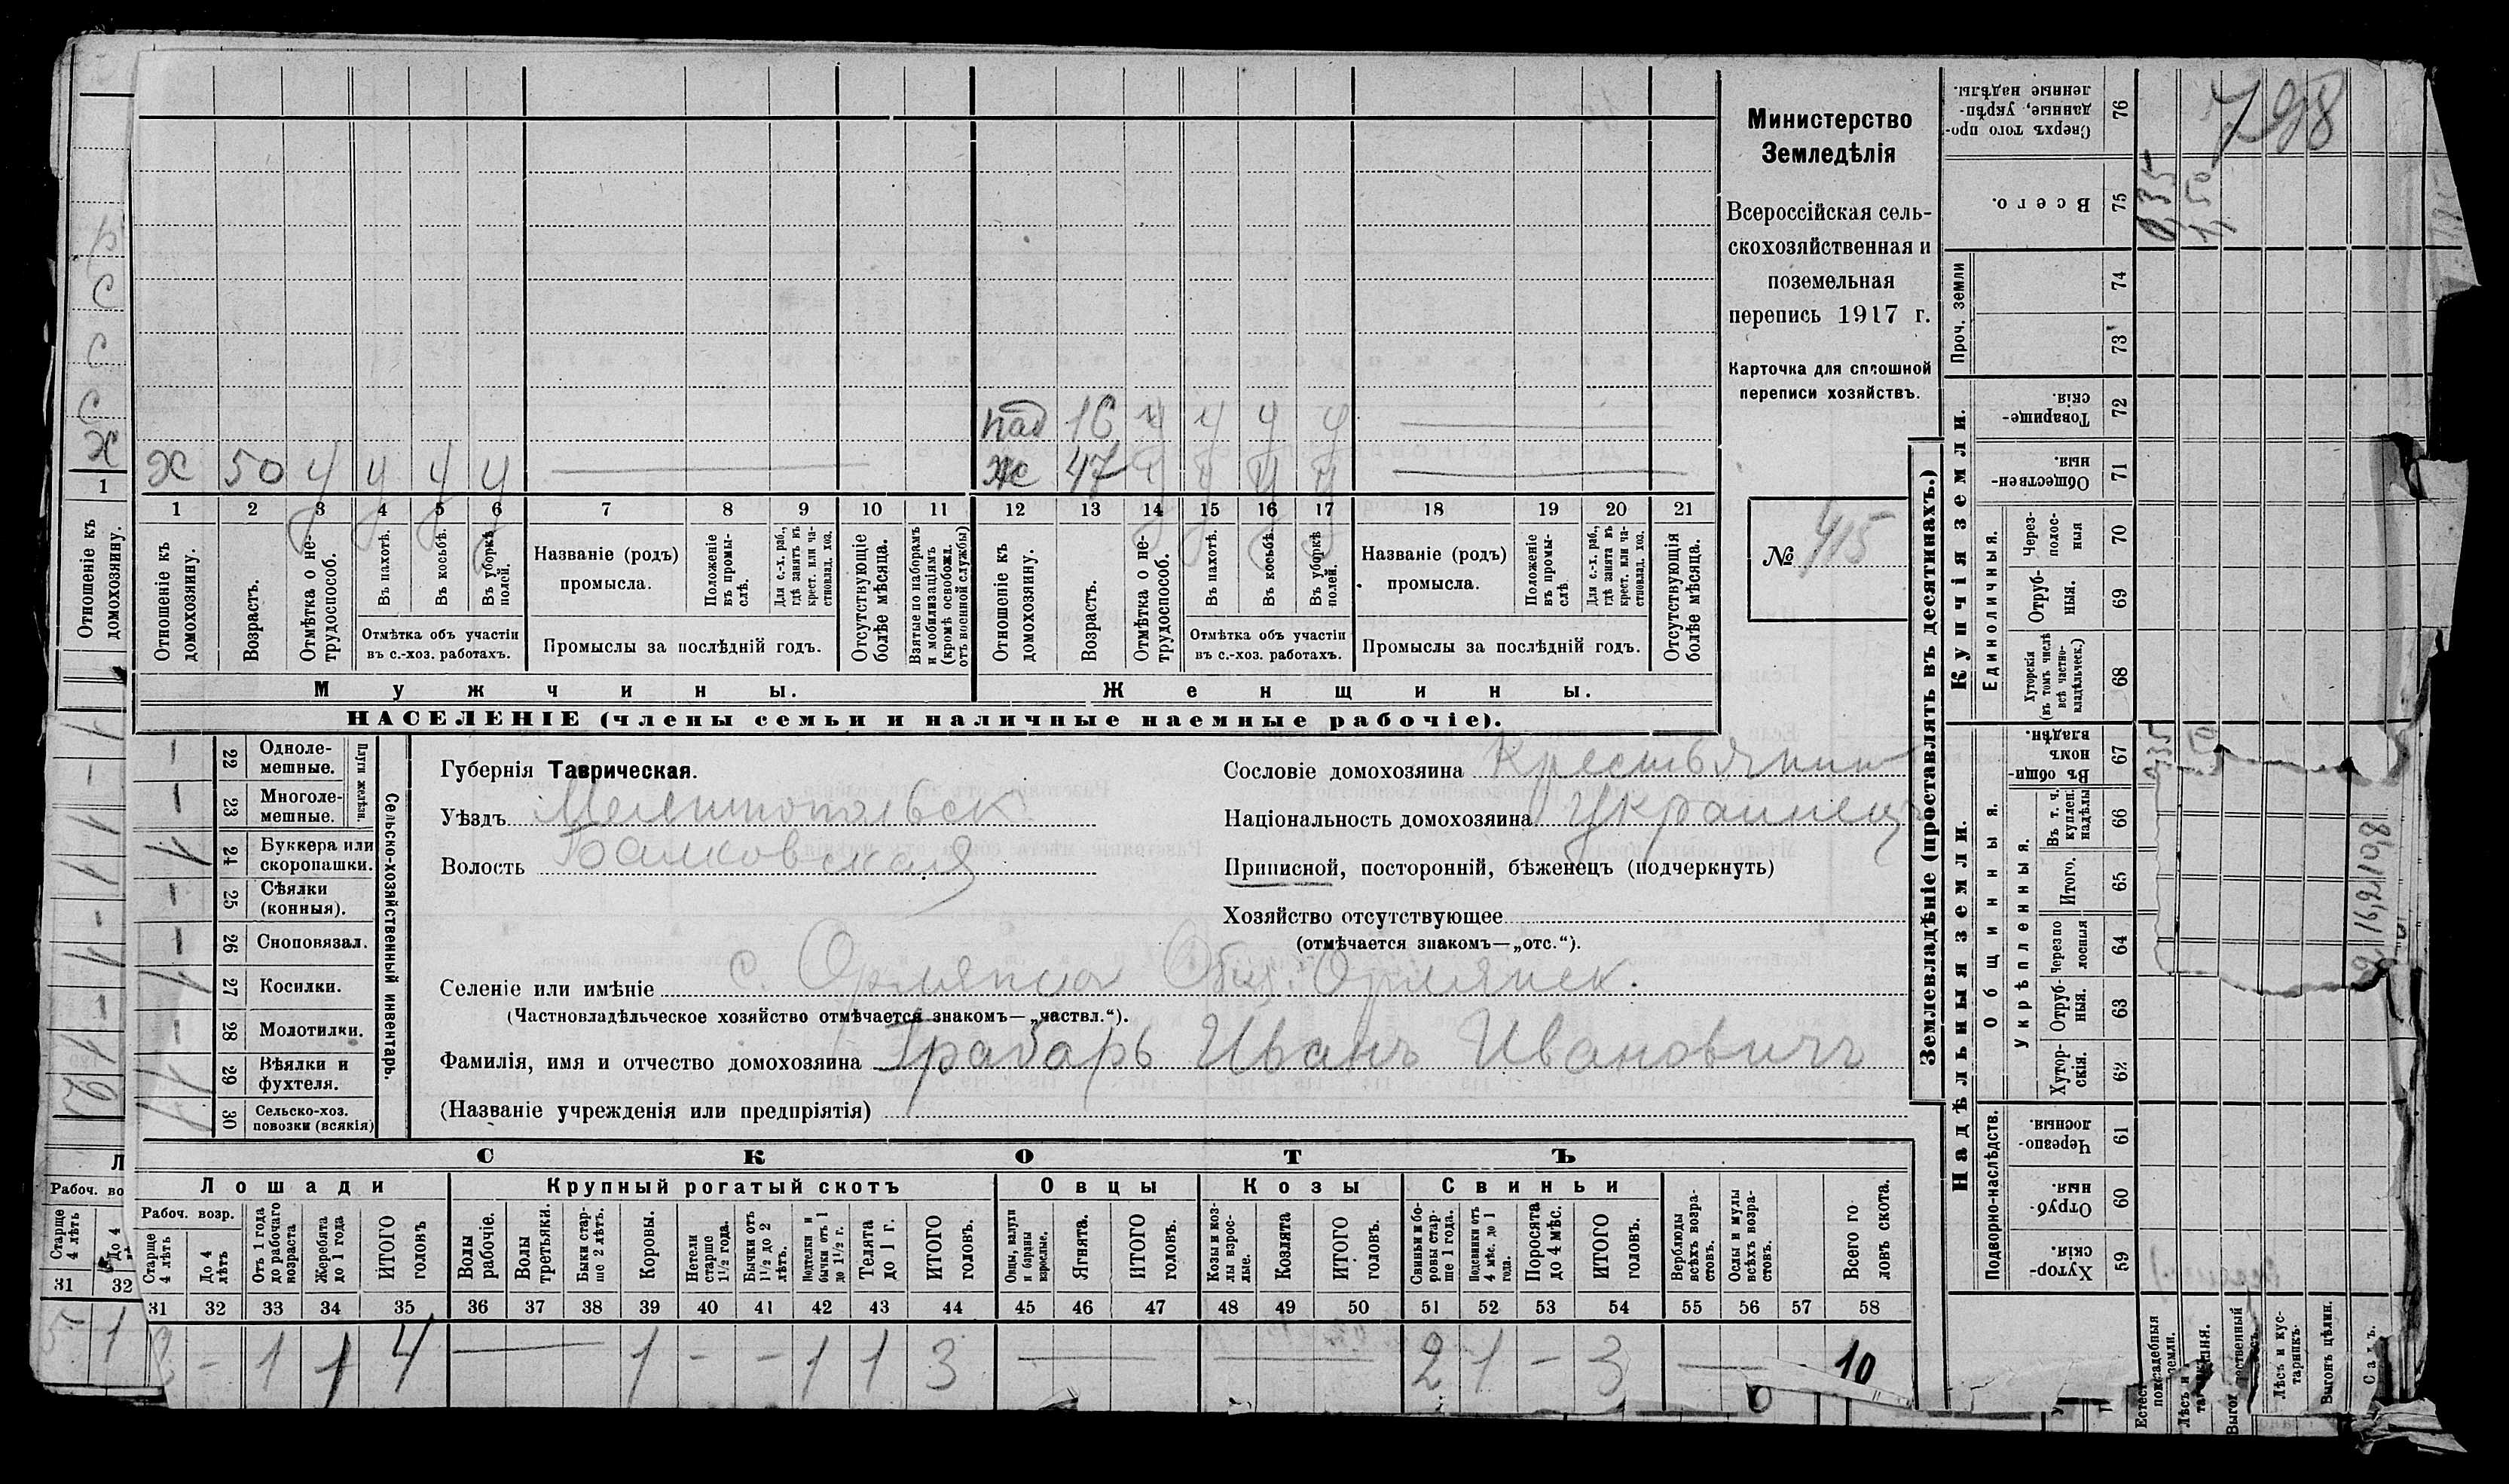 Министерство
Земледѣлія
Всероссійская сель-
скохозяйственная и
поземельная
перепись 1917 г.
Карточка для сплошной
переписи хозяйствъ.
№ 415
798
х 50 у у у у
пад 16 у у у у
ж 47 у у у у
1 2 3 4 5 6 7 8 9 10 11 12 13 14 15 16 17 18 19 20 21
Отношеніе къ домохозяину.
Возрастъ.
Отмѣтка о не-трудоспособ.
Въ пахотѣ.
Въ косьбѣ.
Въ уборкѣ полей.
Отмѣтка объ участіи
въ с.-хоз. работахъ.
Названіе (родъ)
промысла.
Положеніе въ промы-слѣ.
Для с.-х. раб., гдѣ занятъ въ крест. или ча-стновлад. хоз.
Промыслы за послѣдній годъ.
Отсутствующіе болѣе мѣсяца.
Взятые по наборамъ и мобилизаціямъ (кромѣ освобожд. отъ военной службы)
Отношеніе къ домохозяину.
Возрастъ.
Отмѣтка о не-трудоспособ.
Въ пахотѣ.
Въ косьбѣ.
Въ уборкѣ полей.
Отмѣтка объ участіи
въ с.-хоз. работахъ.
Названіе (родъ)
промысла.
Положеніе въ промы-слѣ
Для с.-х. раб., гдѣ занята въ крест. или ча-стновлад. хоз.
Промыслы за послѣдній годъ.
Отсутствующія болѣе мѣсяца.
Мужчины.
Женщины.
НАСЕЛЕНІЕ (члены семьи и наличные наемные рабочіе).
Сельско-хозяйственный инвентарь.
Плуги желѣзн.
22 Одноле-мешные.
23 Многоле-мешные.
24 Буккера или скоропашки.
25 Сѣялки (конныя).
26 Сноповязал.
27 Косилки.
28 Молотилки.
29 Вѣялки и фухтеля.
30 Сельско-хоз. повозки (всякія)
Губернія Таврическая.
Уѣздъ Мелитопольск
Волость Балковская
Сословіе домохозяина Крестьянин
Національность домохозяина Украинец
Приписной, посторонній, бѣженецъ (подчеркнуть)
Хозяйство отсутствующее
(отмѣчается знакомъ—„отс.“).
Селеніе или имѣніе с. Орлянска Общ. Орлянск.
(Частновладѣльческое хозяйство отмѣчается знакомъ—„частвл.“).
Фамилія, имя и отчество домохозяина Грабарь Иванъ Ивановичъ
(Названіе учрежденія или предпріятія)
СКОТЪ
Лошади
Крупный рогатый скотъ
Овцы
Козы
Свиньи
Рабоч. возр.
Старше 4 лѣтъ
До 4 лѣтъ
Отъ 1 года до рабочаго возраста
Жеребята до 1 года
ИТОГО головъ
Волы рабочіе.
Волы третьяки.
Быки стар-ше 2 лѣтъ.
Коровы.
Нетели старше 1½ года.
Бычки отъ 1½ до 2 лѣтъ.
Подтелки и бычки отъ 1 до 1½ г.
Телята до 1 г.
ИТОГО головъ.
Овцы, валухи и бараны взрослые.
Ягнята.
ИТОГО головъ.
Козы и коз-лы взрос-лые.
Козлята
ИТОГО головъ.
Свиньи и бо-ровы стар-ше 1 года.
Подсвинки отъ 4 мѣс. до 1 года.
Поросята до 4 мѣс.
ИТОГО головъ.
Верблюды всѣхъ возра-стовъ.
Ослы и мулы всѣхъ возра-стовъ.
Всего го-ловъ скота.
31 32 33 34 35 36 37 38 39 40 41 42 43 44 45 46 47 48 49 50 51 52 53 54 55 56 57 58
- 1 1 4 — 1 - - 1 1 3 — — 2 1 - 3 — 10
Землевладѣніе (проставлять въ десятинахъ.)
Надѣльныя земли.
Купчія земли.
Проч. земли
Подворно-наслѣдств.
Общинныя.
Укрѣпленныя.
Единоличныя.
59 Хутор-скія.
60 Отруб-ныя.
61 Черезпо-лосныя.
62 Хутор-скія.
63 Отруб-ныя.
64 Черезпо лосныя
65 Итого.
66 Въ т. ч. куплен. надѣлы
67 Въ общин-номъ владѣн.
68 Хуторскія (въ томъ числѣ всѣ частно-владѣльческ.)
69 Отруб-ныя.
70 Через-полос-ныя
71 Обществен-ныя.
72 Товарище-скія.
73
74
75 Всего.
76 Сверхъ того про-данные, укрѣп-ленные надѣлы.
0,35
1,50
Лѣсъ и кус-тарникъ.
Выгонъ цѣлин.
Садъ.
Отношеніе къ домохозяину.
Рабоч. во
Старше 4 лѣтъ
До 4
31 32